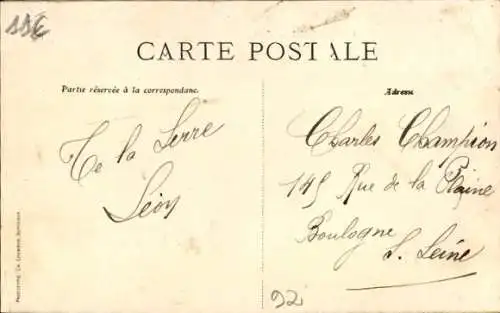 11€
CARTE POSTALE
Partie réservée à la correspondance.
Te la Serre
Léon
Adresse
Charles Champion
145 Rue de la Plaine
Boulogne
S. Seine
92